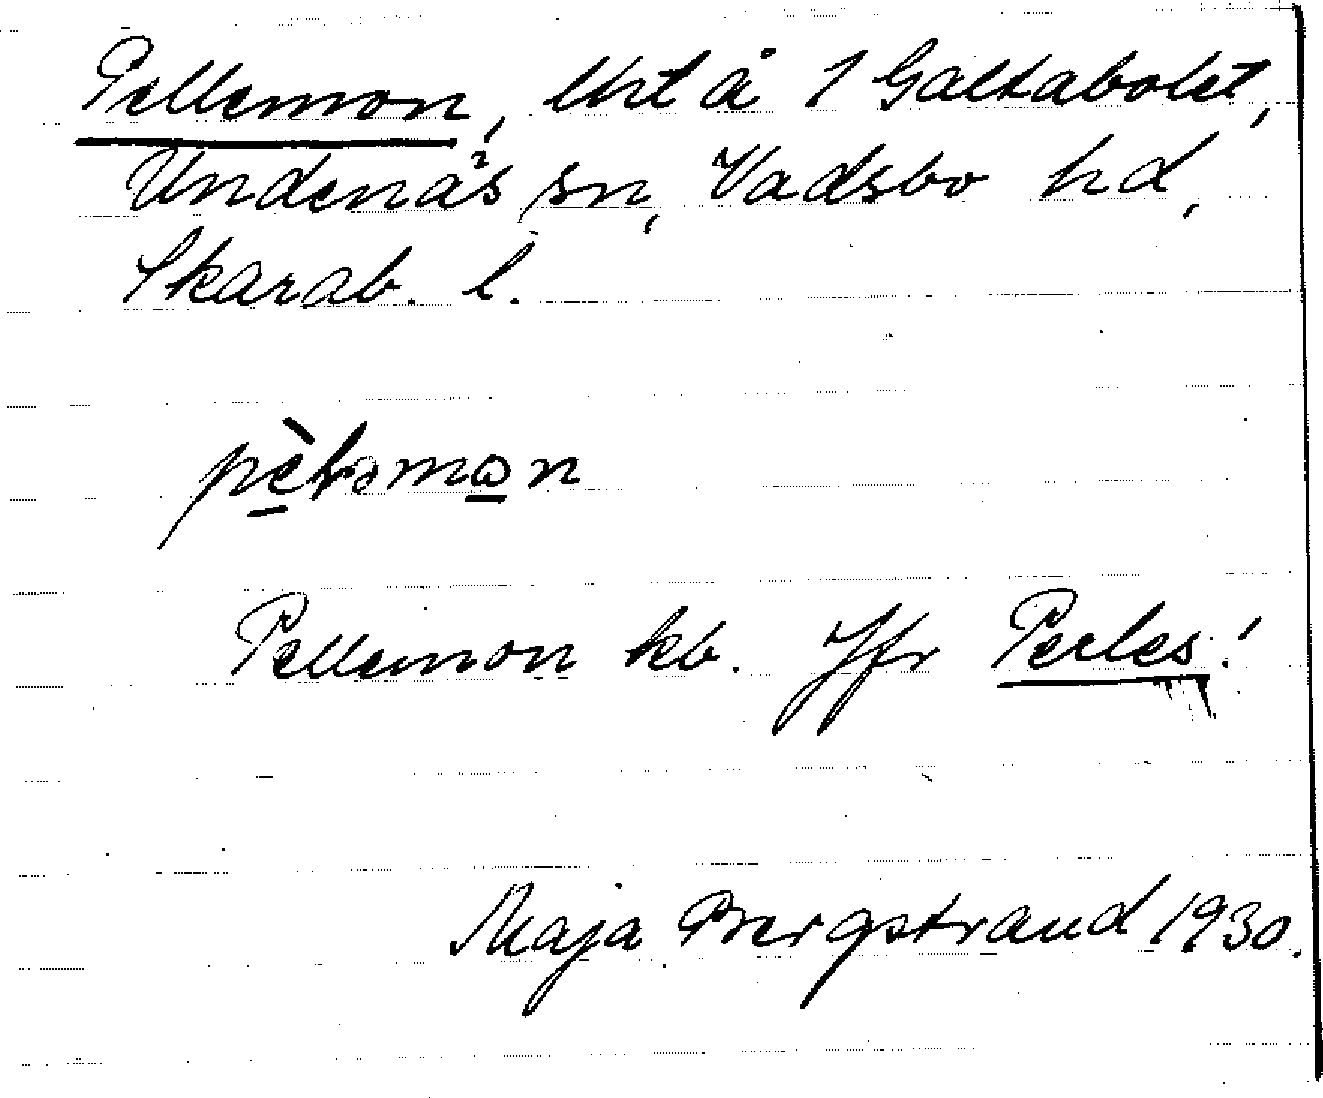 Pellemon, Urt å 1 Galtabolet,
Undenäs sn, Vadsbo hd,
Skarab. l.
Pellemon kb. Jfr Perles!
Maja Bergstrand 1930.